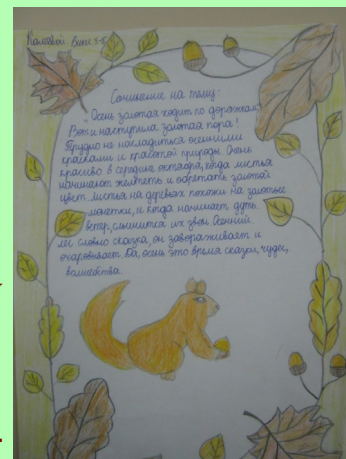 Сочинение на тему:
"Осень золотая ходит по дорожкам"
Вот и наступила золотая пора!
Трудно не насладиться осенними
красками и красотой природы. Очень
красиво в середине октября, когда листья
начинают желтеть и обретать золотой
цвет. Листья на деревьях похожи на золотые
монетки, и когда начинает дуть
ветер, слышится их звон. Осенний
лес словно сказка, он завораживает и
очаровывает. Да, осень это время сказок, чудес,
волшебства.